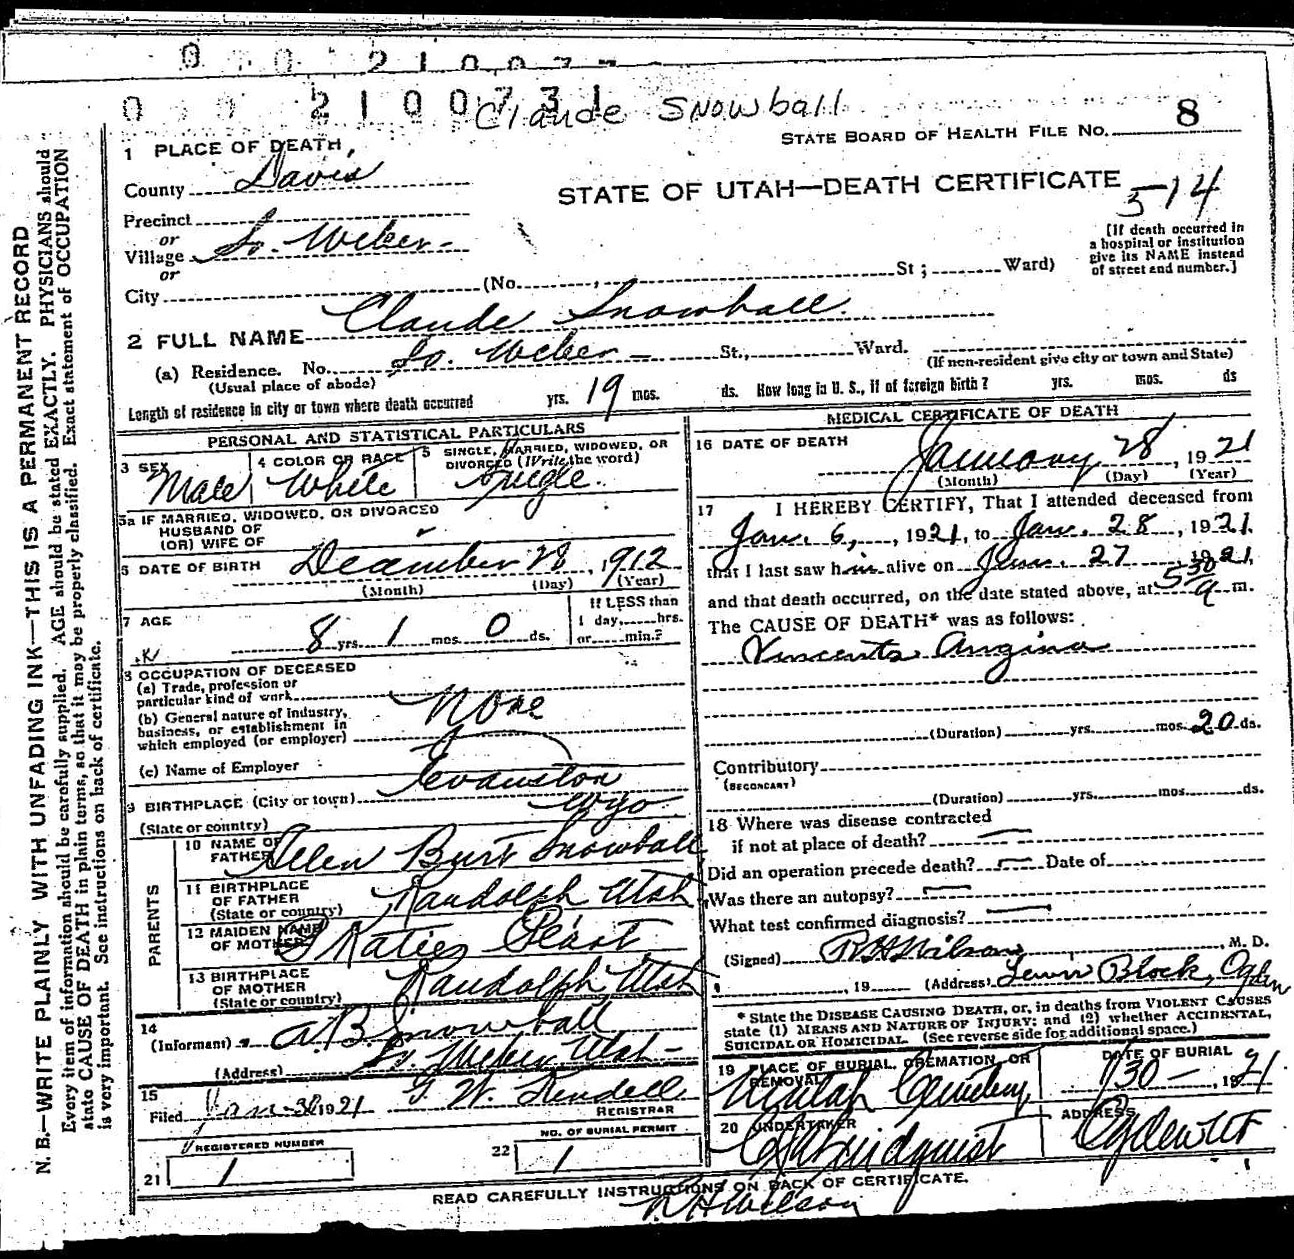 2 1 0 0 7 3 1
Claude Snowball
STATE BOARD OF HEALTH FILE NO. 8
1 PLACE OF DEATH,
County Davis
STATE OF UTAH—DEATH CERTIFICATE
514
Precinct
or
Village So. Weber
or
[If death occurred in
a hospital or institution
give its NAME instead
of street and number.]
City (No. St; Ward)
2 FULL NAME Claude Snowball.
(a) Residence. No. So. Weber St., Ward.
(Usual place of abode) (If non-resident give city or town and State)
Length of residence in city or town where death occurred yrs. 19 mos. ds. How long in U. S., if of foreign birth? yrs. mos. ds
PERSONAL AND STATISTICAL PARTICULARS
3 SEX Male
4 COLOR OR RACE White
5 SINGLE, MARRIED, WIDOWED, OR
DIVORCED (Write the word)
Single.
5a IF MARRIED, WIDOWED, OR DIVORCED
HUSBAND OF
(OR) WIFE OF
6 DATE OF BIRTH December 28, 1912
(Month) (Day) (Year)
7 AGE
8 yrs. 1 mos. 0 ds.
If LESS than
1 day, hrs.
or min.?
8 OCCUPATION OF DECEASED
(a) Trade, profession or
particular kind of work
(b) General nature of industry,
business, or establishment in
which employed (or employer)
None
(c) Name of Employer
9 BIRTHPLACE (City or town) Evanston
(State or country) Wyo
PARENTS
10 NAME OF
FATHER Allen Burt Snowball
11 BIRTHPLACE
OF FATHER
(State or country) Randolph Utah
12 MAIDEN NAME
OF MOTHER Katie Peart
13 BIRTHPLACE
OF MOTHER
(State or country) Randolph Utah
14
(Informant) A. B. Snowball
(Address) So. Weber, Utah
15
Filed Jan 30 1921 G. W. Kendell
REGISTRAR
REGISTERED NUMBER
21 1
NO. OF BURIAL PERMIT
22 1
MEDICAL CERTIFICATE OF DEATH
16 DATE OF DEATH
January 28, 1921
(Month) (Day) (Year)
17 I HEREBY CERTIFY, That I attended deceased from
Jan. 6, , 1921, to Jan. 28, 1921,
that I last saw him alive on Jan. 27 1921,
and that death occurred, on the date stated above, at 5 30 a m.
The CAUSE OF DEATH* was as follows:
Vincents Angina
(Duration) yrs. mos. 20 ds.
Contributory
(SECONDARY)
(Duration) yrs. mos. ds.
18 Where was disease contracted
if not at place of death?
Did an operation precede death? Date of
Was there an autopsy?
What test confirmed diagnosis?
(Signed) R H Wilson, M. D.
, 19 (Address) Lewis Block, Ogden
* State the DISEASE CAUSING DEATH, or, in deaths from VIOLENT CAUSES
state (1) MEANS AND NATURE OF INJURY; and (2) whether ACCIDENTAL,
SUICIDAL OR HOMICIDAL. (See reverse side for additional space.)
19 PLACE OF BURIAL, CREMATION, OR
REMOVAL
Uintah Cemetery
DATE OF BURIAL
1/30 —, 1921
20 UNDERTAKER
Lindquist
ADDRESS
Ogden Ut
READ CAREFULLY INSTRUCTIONS ON BACK OF CERTIFICATE.
N. B.—WRITE PLAINLY WITH UNFADING INK—THIS IS A PERMANENT RECORD
Every item of information should be carefully supplied. AGE should be stated EXACTLY. PHYSICIANS should
state CAUSE OF DEATH in plain terms, so that it may be properly classified. Exact statement of OCCUPATION
is very important. See instructions on back of certificate.